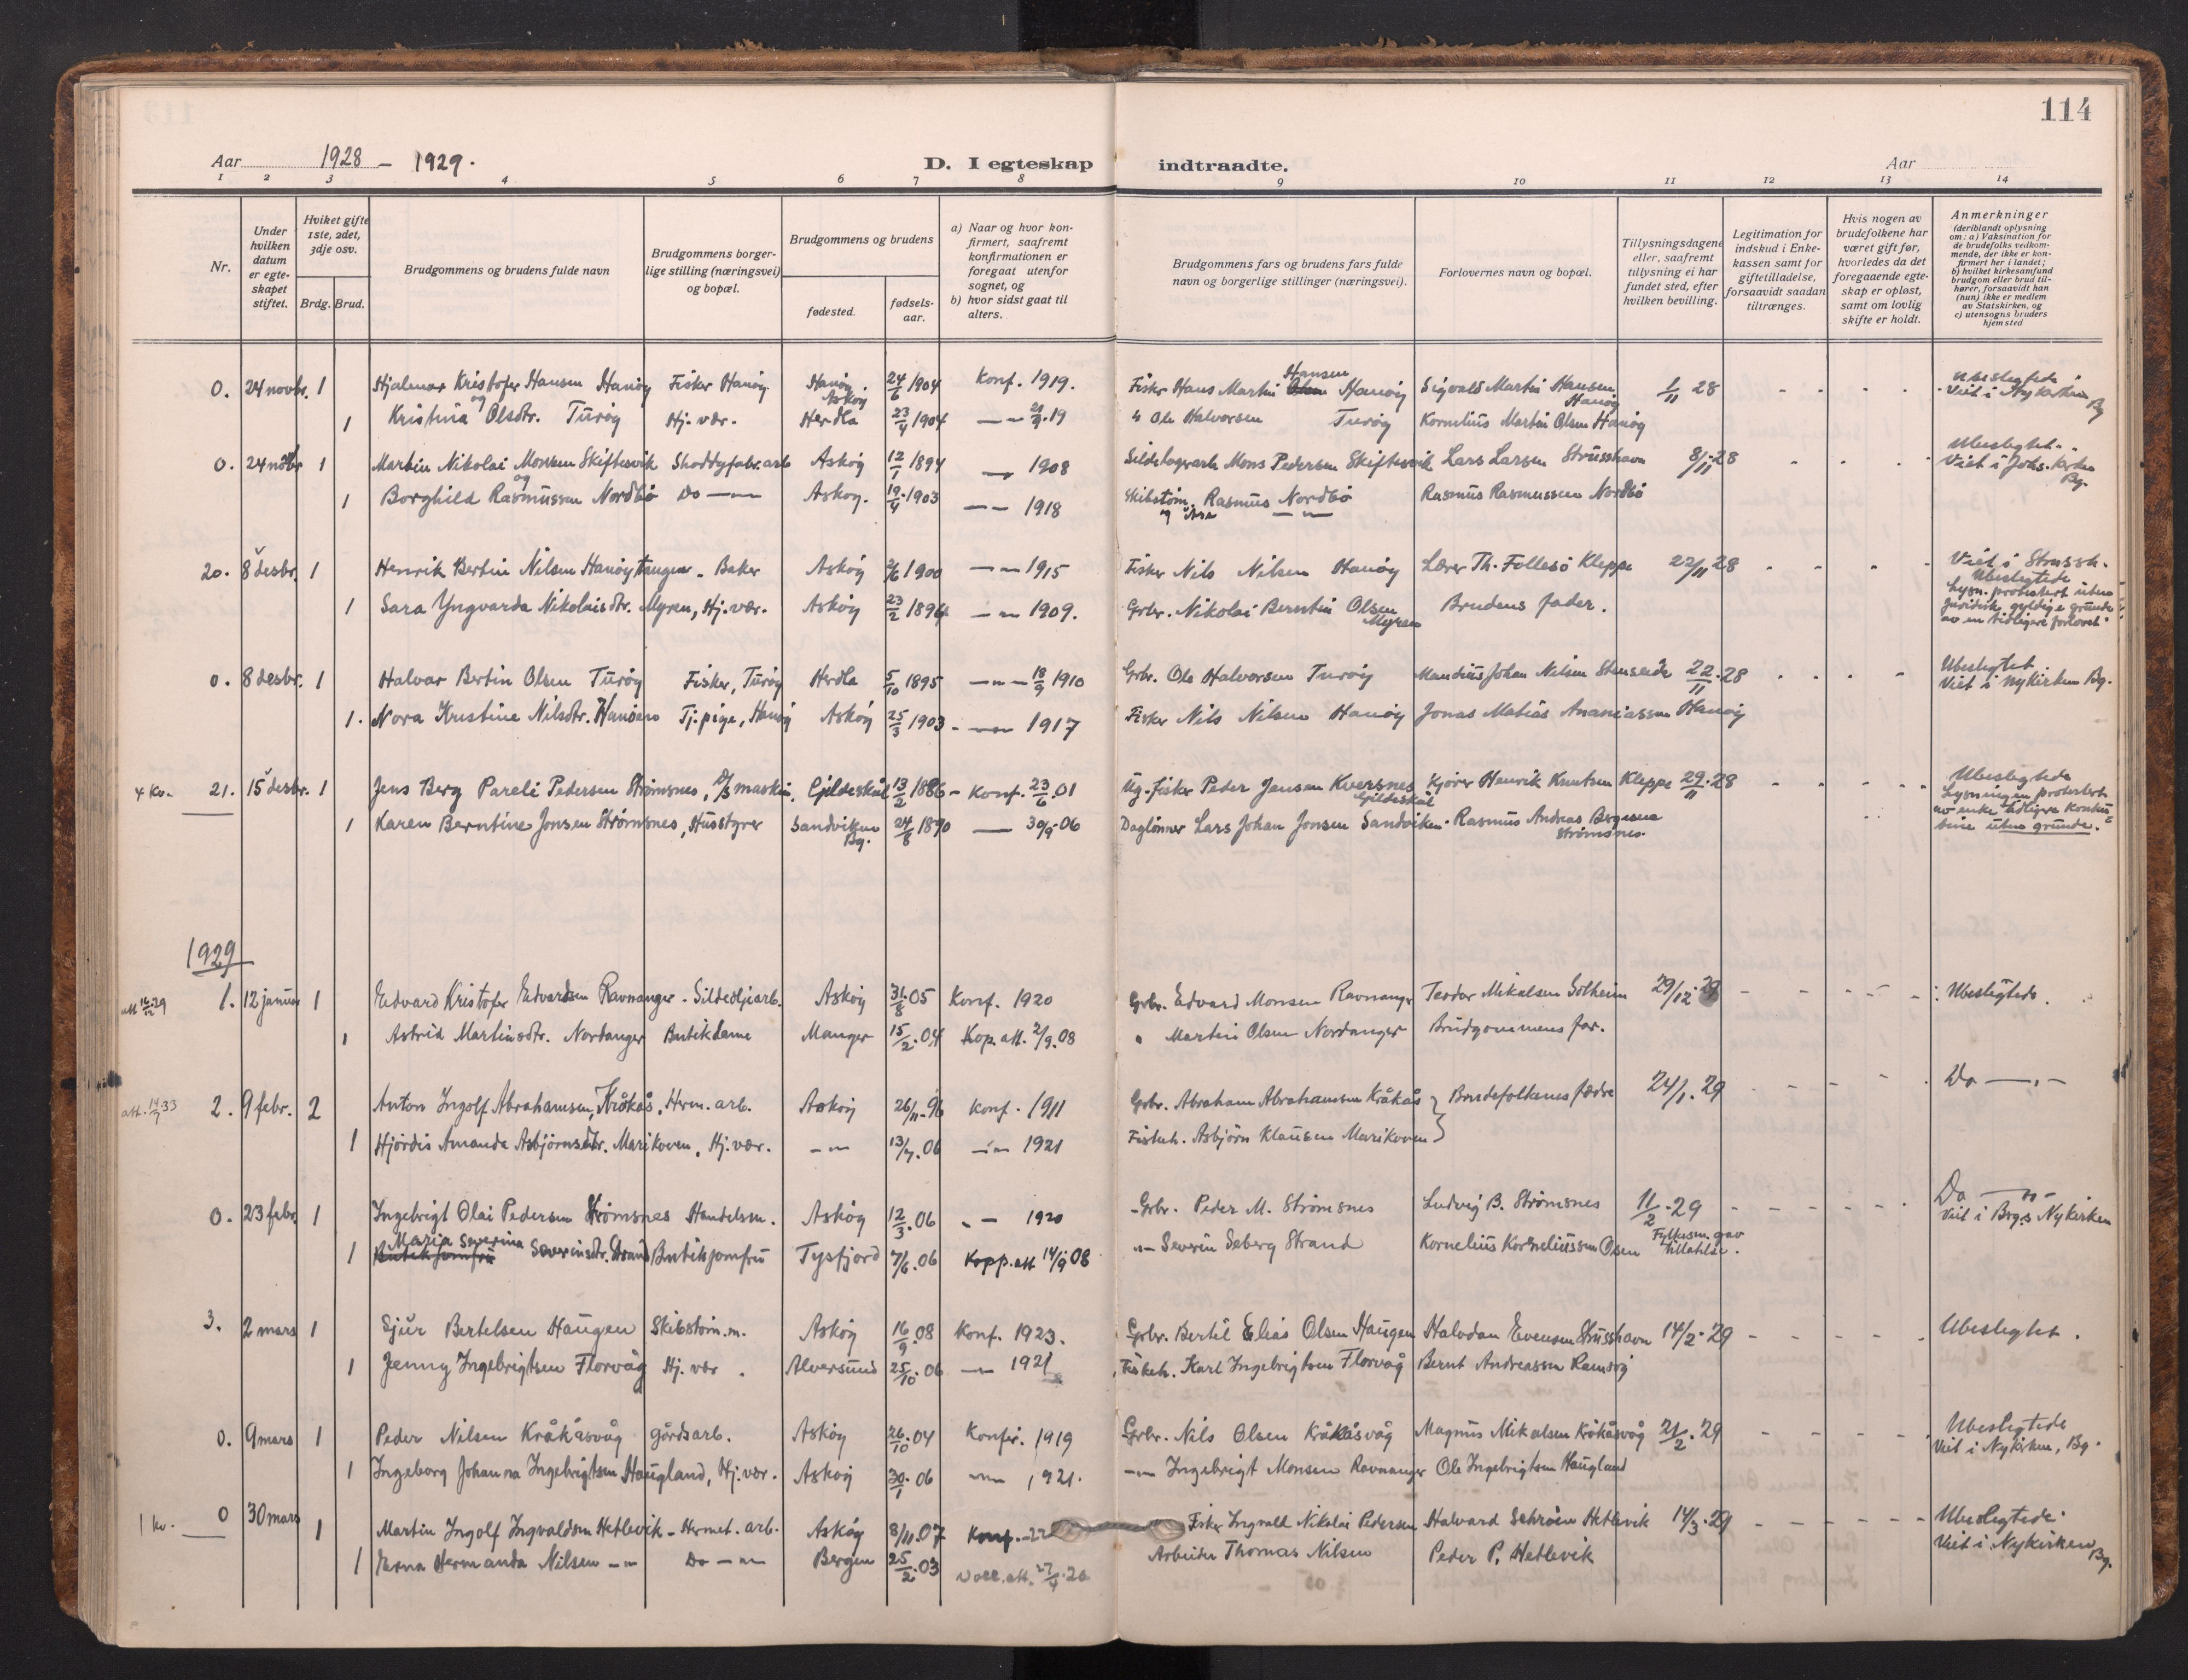 114
Aar 1928 – 1929.
D. I egteskap indtraadte.
Aar
1 2 3 4 5 6 7 8 9 10 11 12 13 14
Nr.
Under hvilken datum er egte-skapet stiftet.
Hviket gifte 1ste, 2det, 3dje osv.
Brdg. Brud.
Brudgommens og brudens fulde navn
Brudgommens borger-lige stilling (næringsvei) og bopæl.
Brudgommens og brudens
fødested.
fødsels-aar.
a) Naar og hvor kon-firmert, saafremt konfirmationen er foregaat utenfor sognet, og
b) hvor sidst gaat til alters.
Brudgommens fars og brudens fars fulde navn og borgerlige stillinger (næringsvei).
Forlovernes navn og bopæl.
Tillysningsdagene eller, saafremt tillysning ei har fundet sted, efter hvilken bevilling.
Legitimation for indskud i Enke-kassen samt for giftetilladelse, forsaavidt saadan tiltrænges.
Hvis nogen av brudefolkene har været gift før, hvorledes da det foregaaende egte-skap er opløst, samt om lovlig skifte er holdt.
Anmerkninger (deriblandt oplysning om: a) Vaksination for de brudefolks vedkom-mende, der ikke er kon-firmert her i landet; b) hvilket kirkesamfund brudgom eller brud til-hører, forsaavidt han (hun) ikke er medlem av Statskirken, og c) utensogns bruders hjemsted
0. 24 novbr. 1 Hjalmar Kristofer Hansen Hanøy Fisker Hanøy. Hanøy. Askøy 24/6 1904 Konf. 1919. Fisker Hans Martin Hansen Hanøy Sigvald Martin Hansen Hanøy 1/11 28 Ubeslegtede Viet i Nykirken Bg
og
1 Kristina Olsdtr. Turøy Hj. vær. Herdla 23/4 1904 — 21/9.19 " Ole Halvorsen Turøy Kornelius Martin Olsen Hanøy
0. 24 novbr 1 Martin Nikolai Monsen Skiftesvik Shoddyfabr.arb Askøy 12/1 1894 — 1908 Mons Pedersen Skiftesvik Lars Larsen Strusshavn 8/11 28 Ubeslegtet. Viet i Johs. kirken Bg.
og
1 Borghild Rasmussen Nordbø Do — Askøy. 19/4 1903 — 1918 Skibstøm. Rasmus Nordbø Rasmus Rasmussen Nordbø
20. 8 desbr. 1 Henrik Bertin Nilsen Hanøytangen - Baker Askøy 1900 — 1915 Fisker Nils Nilsen Hanøy Lærer Th. Follesø Kleppe 22/11 28 Viet i Strussh. Ubeslegtede
Lysn. protestert uten juridisk gyldige grunde av en tidligere forlovet
1 Sara Yngvarda Nikolaisdtr. Myren, Hj. vær. Askøy 23/2 1896 — 1909. Grbr. Nikolai Berntin Olsen Myren Brudens fader.
0. 8 desbr. 1 Halvar Bertin Olsen Turøy Fisker, Turøy Herdla 5/10 1895 — 18/9 1910 Grbr. Ole Halvorsen Turøy Mandius Johan Nilsen Stenseide 22/11.28 Ubeslegtet. Viet i Nykirken Bg.
1. Nora Kristine Nilsdtr. Hanøen Tj.pige, Hanøy Askøy 25/3 1903 — 1917 Fisker Nils Nilsen Hanøy Jonas Matias Ananiassen Hanøy
4 Kv. 21. 15 desbr. 1 Jens Berg Pareli Pedersen Strømsnes, D/S maskin. Gildeskål 13/2 1886 Konf. 23/6.01 Ug. fisker Peder Jensen Kversnes Gildeskål Kjører Henrik Knutsen Kleppe 29/11.28 Ubeslegtede
Lysningen protestert av enke tidligere uten grunde.
1 Karen Berntine Jonsen Strømsnes, Husstyrer Sandviken Bg. 24/8 1890 — 30/9.06 Daglønner Lars Johan Jonsen Sandviken. Rasmus Andreas Bergesen Strømsnes.
1929
att. 16/12.29 1. 12 januar 1 Edvard Kristofer Edvardsen Ravnanger - Sildoljearb. Askøy 31/8.05 Konf. 1920 Grbr. Edvard Monsen Ravnanger Teodor Mikalsen Solheim 29/12.29 Ubeslegtede.
1 Astrid Martinsdtr. Nordanger Butikdame Manger 15/2.04 Kop.att. 2/9.08 " Martin Olsen Nordanger Brudgommens far.
att. 14/7 33 2. 9 febr. 2 Anton Ingolf Abrahamsen, Kråkås, Herm. arb. Askøy 26/11.96 Konf. 1911 Grbr. Abraham Abrahamsen Kråkås } Brudefolkenes fædre 24/1.29 Do —„—
1 Hjørdis Amanda Asbjørnsdtr. Marikoven, Hj. vær. — 13/7.06 — 1921 Fiskeh. Asbjørn Klausen Marikoven
0. 23 febr. 1 Ingebrigt Olai Pedersen Strømsnes Handelsm. Askøy 12/3.06 — 1920 Grbr. Peder M. Strømsnes Ludvig B. Strømsnes 11/2.29 Do —„— Viet i Brgs Nykirken
1 Maria Severina Severinsdtr. Strand Butikjomfru Tysfjord 7/6.06 Kopp.att 14/9 08 —„— Severin Seberg Strand Kornelius Korneliussen Olsen Fylkesm. gav tillatelse.
3. 2 mars 1 Sjur Bertelsen Haugen Skibstøm.m. Askøy 16/9.08 Konf. 1923. Grbr. Bertil Elias Olsen Haugen Halvdan Evensen Strusshavn 14/2.29 Ubeslegtet.
1 Jenny Ingebrigtsen Florvåg Hj. vær. Alversund 25/10.06 — 1921 Fiskeh. Karl Ingebrigtsen Florvåg Bernt Andreassen Ramsøy
0. 9 mars 1 Peder Nilsen Kråkåsvåg gårdsarb. Askøy 26/10.04 Konfir. 1919 Grbr. Nils Olsen Kråkåsvåg Magnus Mikalsen Kråkåsvåg 21/2.29 Ubeslegtede Viet i Nykirken, Bg.
1 Ingeborg Johanna Ingebrigtsen Haugland, Hj. vær. Askøy 30/1.06 —„— 1921. —„— Ingebrigt Monsen Ravnanger Ole Ingebrigtsen Haugland
1 kv. 0 30 mars 1 Martin Ingolf Ingvaldsen Hetlevik - Hermet. arb. Askøy 8/11.07 Konf. -22 Fisker Ingvald Nikolai Pedersen Halvard Schrøen Hetlevik 14/3.29 Ubeslegtede. Viet i Nykirken Bg.
1 Erna Hermanda Nilsen —„— Do —„— Bergen 25/2.03 Vacc.att. 27/4.20 Arbeider Thomas Nilsen Peder P. Hetlevik